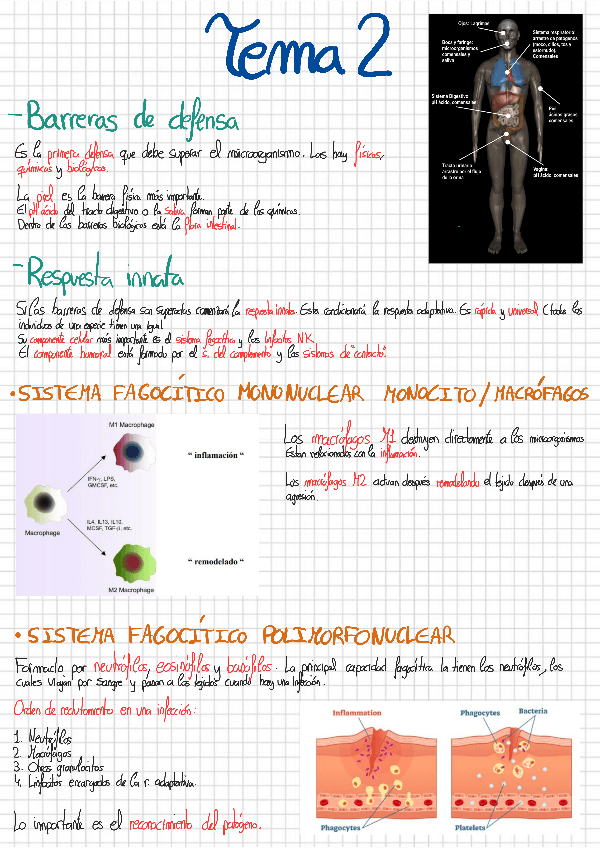 Tema 2
Ojos: Lágrimas
Boca y faringe:
microorganismos
comensales y
saliva
Sistema respiratorio
arrastre de patógenos
(moco, cilios, tos y
estornudo).
Comensales
Sistema Digestivo
pH ácido, comensales
Piel
ácidos grasos
comensales
Tracto urinario
arrastre por el flujo
de la orina
Vagina
pH ácido, comensales
- Barreras de defensa
Es la primera defensa que debe superar el microorganismo. Las hay físicas,
químicas y biológicas.
La piel es la barrera física más importante.
El pH ácido del tracto digestivo o la saliva forman parte de las químicas.
Dentro de las barreras biológicas está la flora intestinal.
- Respuesta innata
Si las barreras de defensa son superadas comenzará la respuesta innata. Esta condicionará la respuesta adaptativa. Es rápida y universal (todos los
individuos de una especie tienen una igual
Su componente celular más importante es el sistema fagocítico y los linfocitos NK.
El componente humoral está formado por el s. del complemento y los sistemas de "contacto".
• SISTEMA FAGOCÍTICO MONONUCLEAR MONOCITO/MACRÓFAGOS
M1 Macrophage
" inflamación "
IFN-γ, LPS,
GMCSF, etc.
Macrophage
IL4, IL13, IL10,
MCSF, TGF-β, etc.
" remodelado "
M2 Macrophage
Los macrófagos M1 destruyen directamente a los microorganismos
Están relacionados con la inflamación.
Los macrófagos M2 actúan después remodelando el tejido después de una
agresión.
• SISTEMA FAGOCÍTICO POLIMORFONUCLEAR
Formado por neutrófilos, eosinófilos y basófilos. La principal capacidad fagocítica la tienen los neutrófilos, los
cuales viajan por sangre y pasan a los tejidos cuando hay una infección.
Orden de reclutamiento en una infección:
1. Neutrófilos
2. Macrófagos
3. Otros granulocitos
4. Linfocitos encargados de la r. adaptativa.
Lo importante es el reconocimiento del patógeno.
Inflammation
Phagocytes
Phagocytes
Bacteria
Platelets